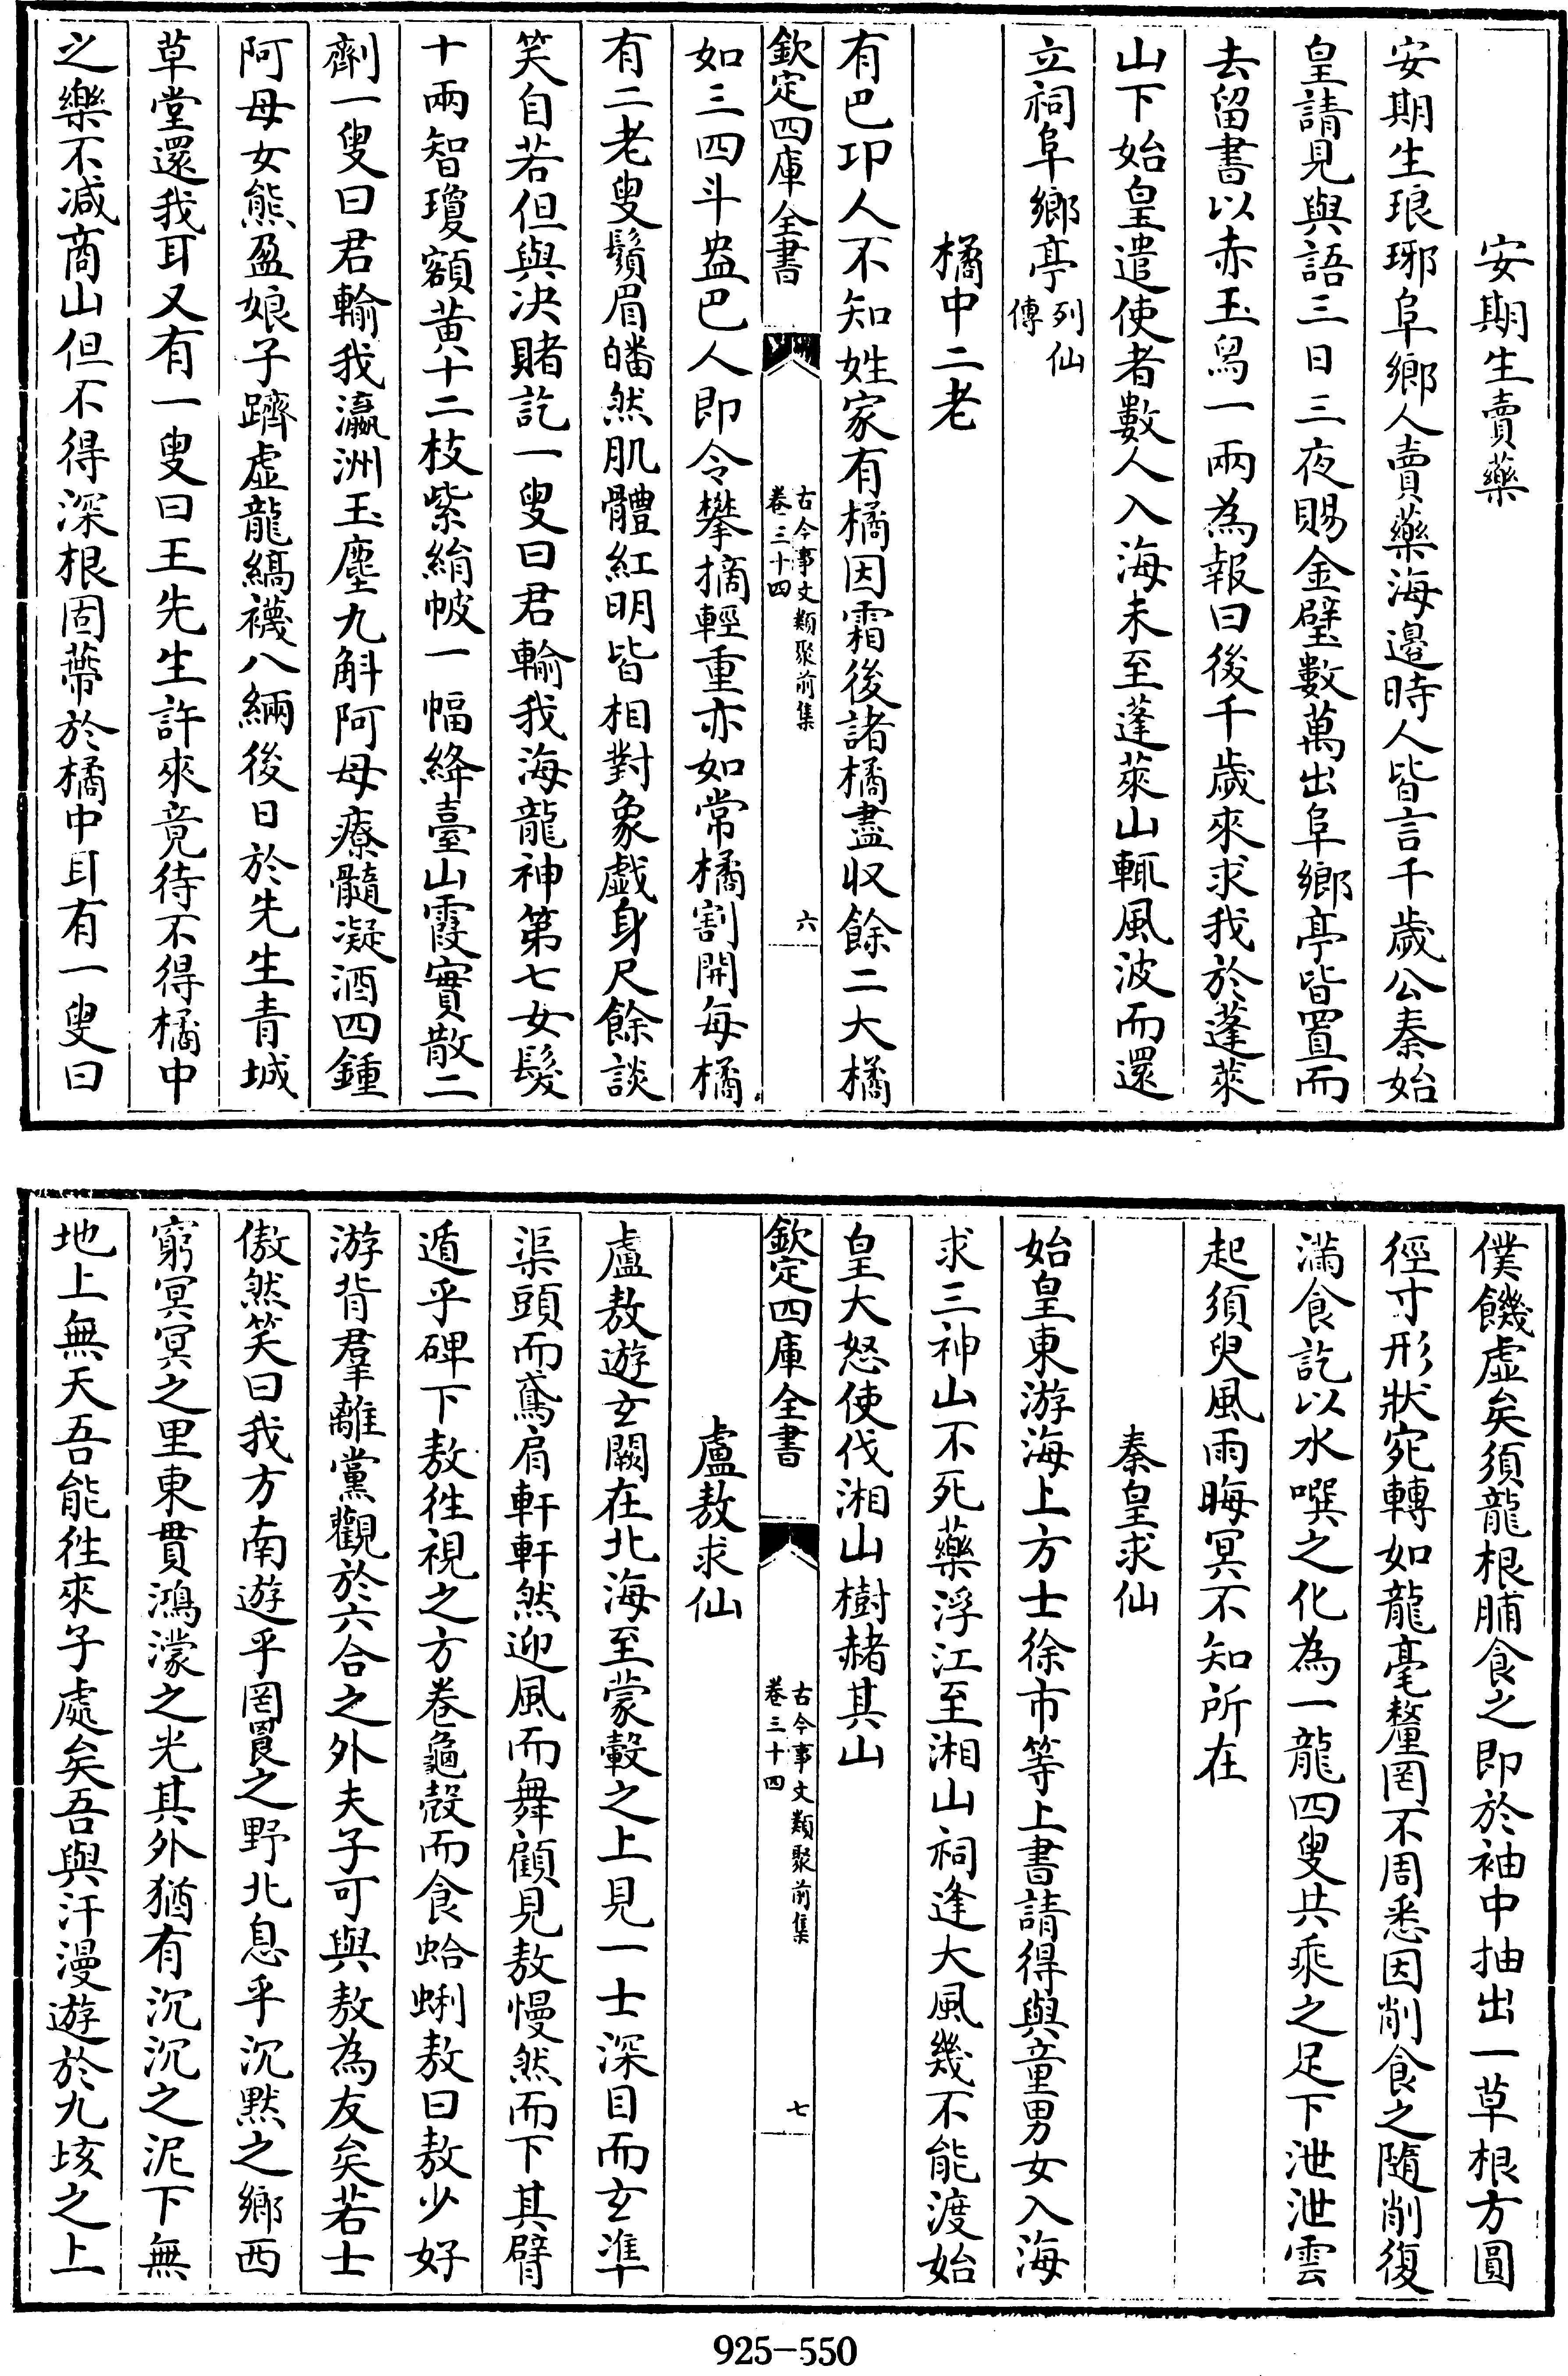 安期生賣藥
安期生琅琊阜鄉人賣藥海邉時人皆言千歲公秦始
皇請見與語三日三夜賜金璧數萬出阜鄉亭皆置而
去留書以赤玉舄一兩為報曰後千歲來求我於蓬萊
山下始皇遣使者數人入海未至蓬萊山輒風波而還
立祠阜鄉亭列仙傳
橘中二老
有巴卭人不知姓家有橘因霜後諸橘盡収餘二大橘
欽定四庫全書 古今事文類聚前集 卷三十四 六
如三四斗盎巴人即令攀摘輕重亦如常橘割開每橘
有二老叟鬚眉皤然肌體紅明皆相對象戯身尺餘談
笑自若但與决賭訖一叟曰君輸我海龍神第七女髮
十兩智瓊額黃十二枝紫絹帔一幅絳臺山霞實散二
劑一叟曰君輸我瀛洲玉塵九斛阿母療髓凝酒四鍾
阿母女熊盈娘子躋虛龍縞襪八緉後日於先生青城
草堂還我耳又有一叟曰王先生許來竟待不得橘中
之樂不減商山但不得深根固蔕於橘中耳有一叟曰
僕饑虛矣須龍根脯食之即於袖中抽出一草根方圓
徑寸形狀宛轉如龍毫釐罔不周悉因削食之隨削復
滿食訖以水噀之化為一龍四叟共乘之足下泄泄雲
起須臾風雨晦冥不知所在
秦皇求仙
始皇東游海上方士徐市等上書請得與童男女入海
求三神山不死藥浮江至湘山祠逢大風幾不能渡始
皇大怒使伐湘山樹赭其山
欽定四庫全書 古今事文類聚前集 卷三十四 七
盧敖求仙
盧敖遊玄闕在北海至蒙轂之上見一士深目而玄準
渠頭而鳶肩軒軒然迎風而舞顧見敖慢然而下其臂
遁乎碑下敖徃視之方卷龜殼而食蛤蜊敖曰敖少好
游背羣離黨觀於六合之外夫子可與敖為友矣若士
傲然笑曰我方南遊乎罔㝗之野北息乎沉默之鄉西
窮冥冥之里東貫鴻濛之光其外猶有沉沉之泥下無
地上無天吾能徃來子處矣吾與汗漫遊於九垓之上
925-550